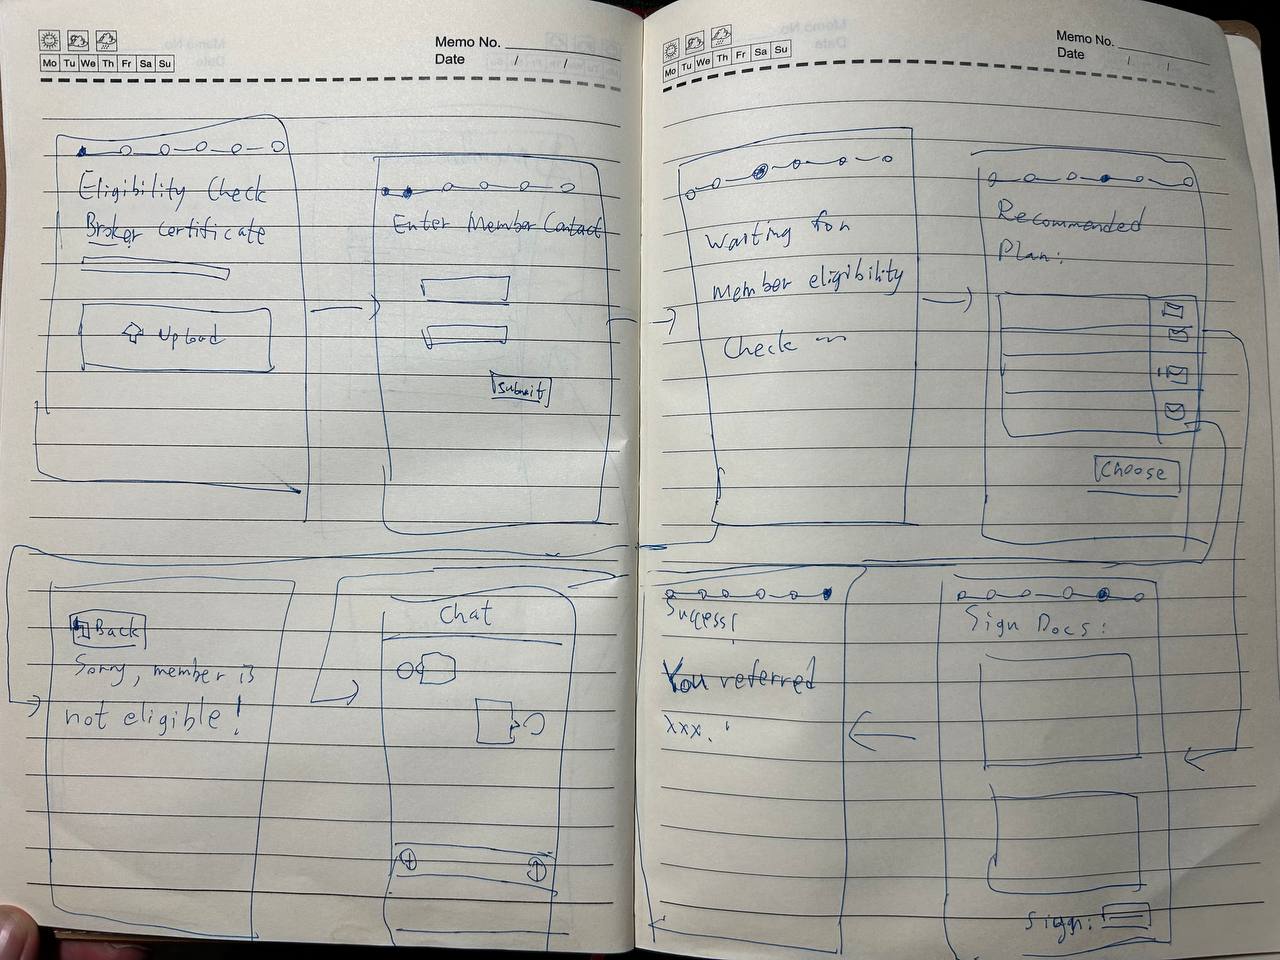 Mo Tu We Th Fr Sa Su
Memo No.
Date / /
Eligibility Check
Broker certificate
Upload
Enter Member Contact
Submit
Back
Sorry, member is
not eligible!
Chat
Mo Tu We Th Fr Sa Su
Memo No.
Date / /
Waiting for
member eligibility
check
Recommended
Plan:
Choose
Success!
You referred
xxx.
Sign Docs:
Sign: